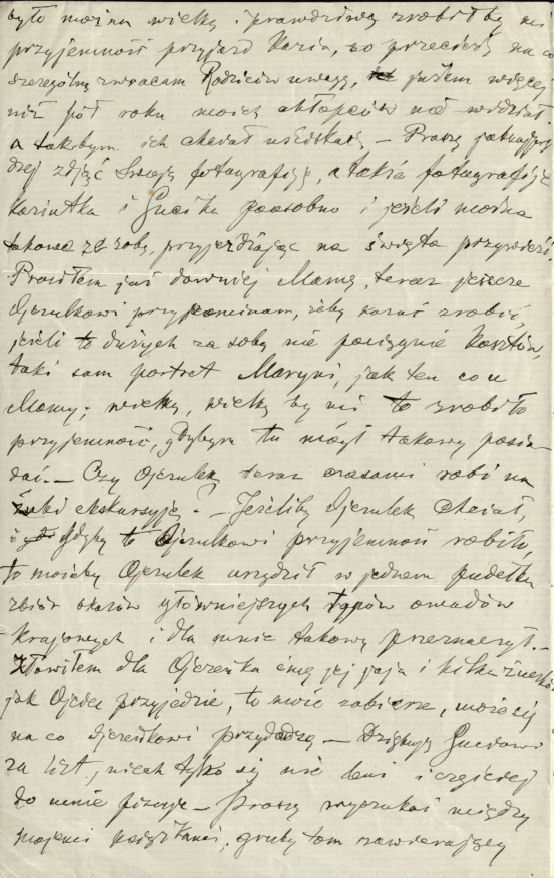 było można wielką i prawdziwą zrobiłby mi
przyjemność przyjazd Kazia, co przecież na co
szczególną zwracam Rodziców uwagę, jużem więcej
niż pół roku moich chłopców nie widział
a takbym ich chciał uściskać, — Proszę jaknajprę
dzej zdjąć swoją fotografiję, a także fotografiję
Kaziutka i Gucika i jeśli można
takowe ze sobą, przyjeżdżając na święta przywieźć.
Prosiłem już dawniej Mamę, teraz jeszcze
Ojczulkowi przypominam, żeby kazać zrobić,
jeśli to dużych za sobą nie pociągnie kosztów,
taki sam portret Maryni, jak ten co u
Mamy; wielką, wielką by mi to zrobiło
przyjemność, gdybym tu mógł takowy posia
dać. — Czy Ojczulek teraz czasami robi na
żuki ekskursyje? — Jeśliby Ojczulek chciał,
i gdyby to Ojczulkowi przyjemność robiło,
to możeby Ojczulek urządził w jednem pudełku
zbiór okazów główniejszych typów owadów
krajowych i dla mnie takowy przeznaczył. —
Złowiłem dla Ojczeńka ćmę jej jaja i kilka żuczków
jak Ojciec przyjedzie, to może zabierze, może się
na co Ojczeńkowi przydadzą — Dziękuję Guciowi
za list, niech tylko się nie leni i częściej
do mnie pisuje — Proszę wyszukać między
mojemi książkami, gruby tom zawierający